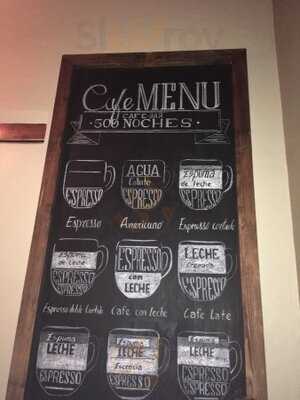 Cafe MENU
CAFE BAR
500 NOCHES
ESPRESSO
AGUA
ESPRESSO
Espuma
de leche
ESPRESSO
Espresso
Americano
Espresso
Espuma
de leche
ESPRESSO
ESPRESSO
ESPRESSO
con
LECHE
LECHE
ESPRESSO
Espresso doble
Cafe con leche
Cafe Late
Espuma
LECHE
ESPRESSO
Espuma
LECHE
ESPRESSO
Espuma
LECHE
ESPRESSO